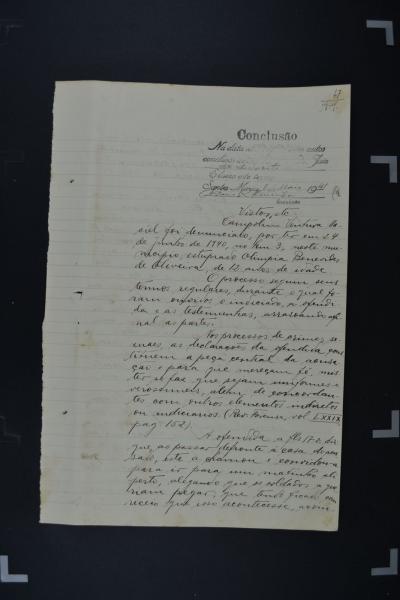 Conclusão
Na data
conclusos
Escrevente
Santa Maria 1941
Vistos, etc.
Campolim Ventura
foi denunciado, por ter em 24
de junho de 1940, no km 3, neste mu-
nicipio, estuprado Olimpia Benevides
de Oliveira, de 12 anos de idade
O processo seguiu seus
termos regulares, durante o qual fo-
ram ouvidos o indiciado, a ofendi-
da e as testemunhas, arrazoando afi-
nal as partes.
Nos processos de crimes se-
xuais, as declarações da ofendida cons-
tituem a peça central da acusa-
ção e para que mereçam fé, mis-
ter se faz que sejam uniformes e
verosimeis, alem de concordan-
tes com outros elementos indiretos
ou indiciarios. (Rev. Forense, vol LXXIX
pag 152).
A ofendida a fls 17 v. diz
que, ao passar defronte á casa do acu-
sado, este a chamou e convidou-a
para ir para um matinho ali
perto, alegando que os soldados a que-
riam pegar; que tendo ficado com
receio que isso acontecesse, acom-